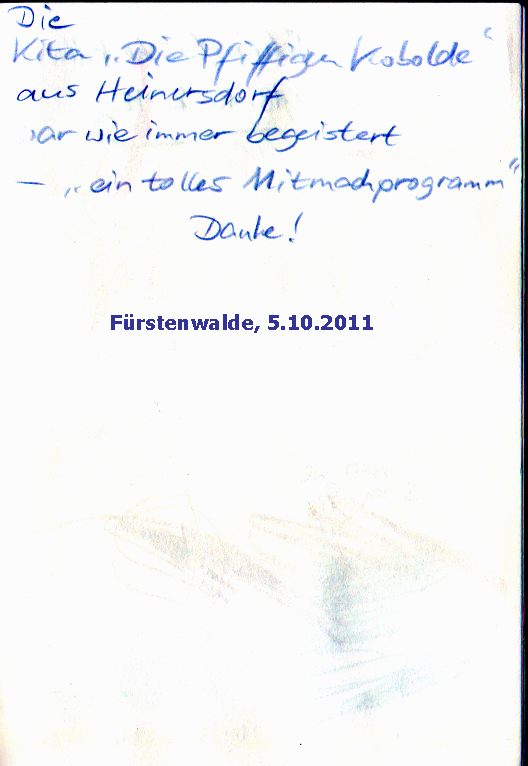 Die
Kita „Die Pfiffigen Kobolde“
aus Heinersdorf
war wie immer begeistert
– „ein tolles Mitmachprogramm“
Danke!
Fürstenwalde, 5.10.2011